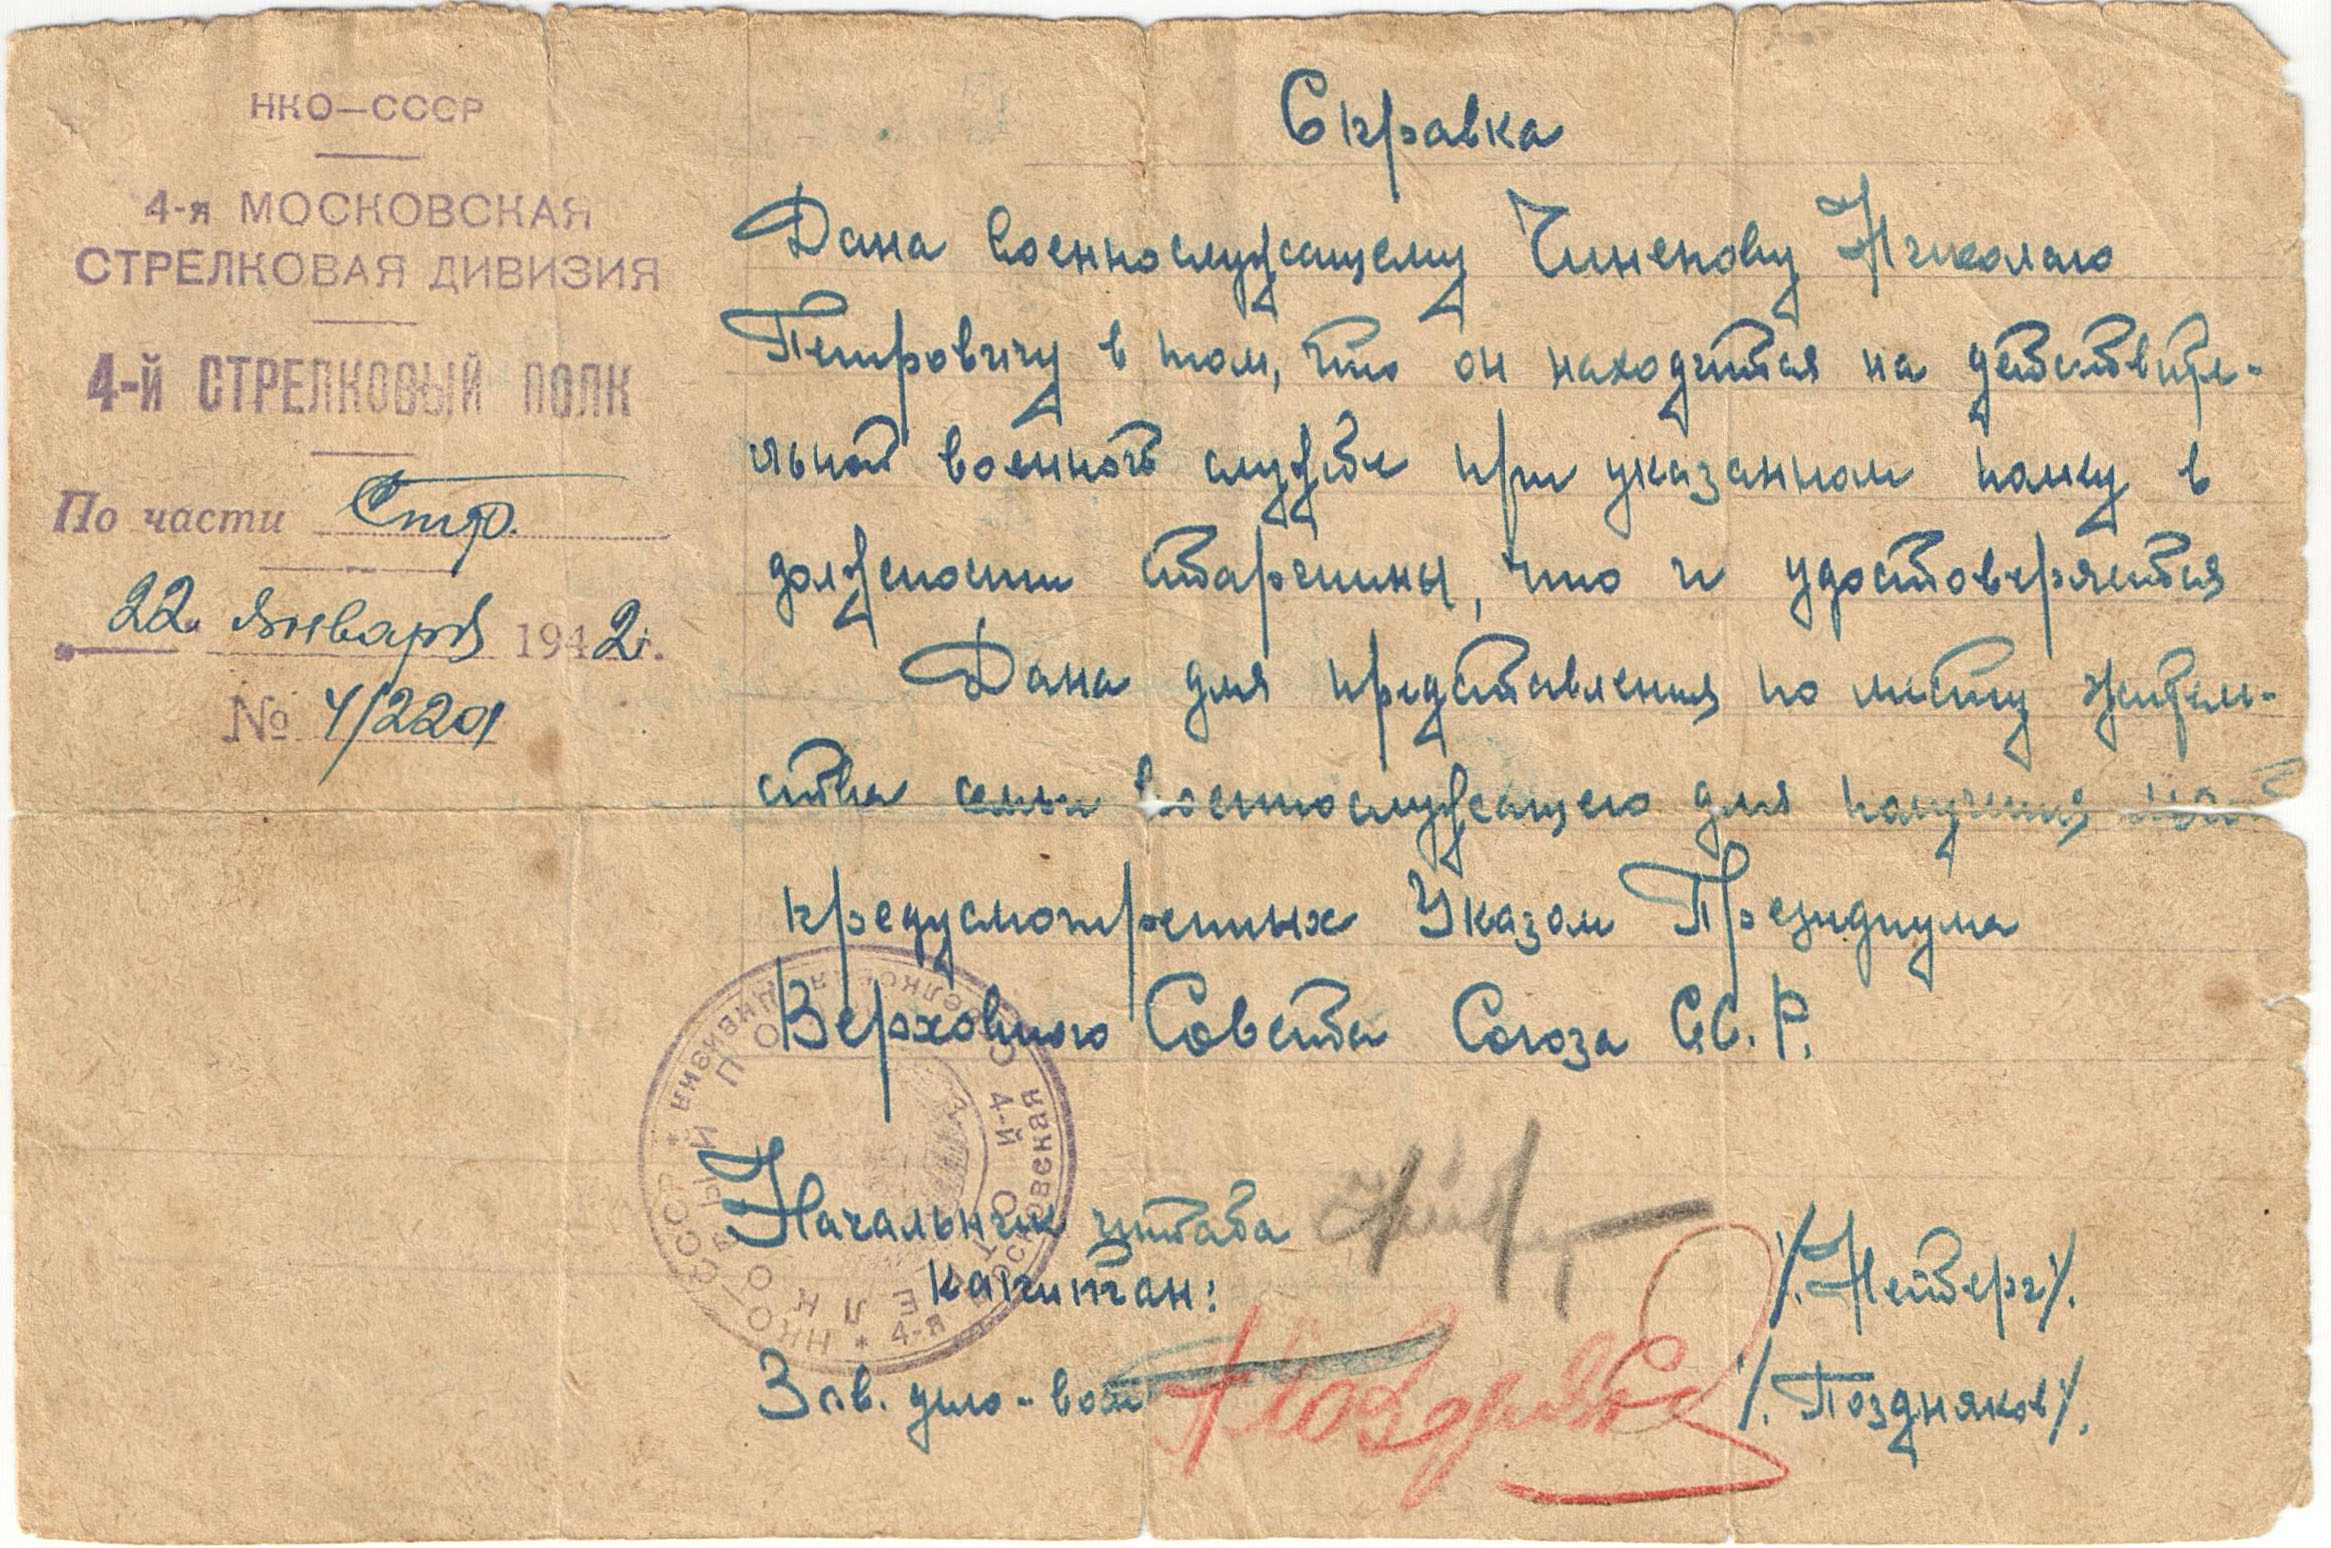 НКО—СССР
4-я МОСКОВСКАЯ
СТРЕЛКОВАЯ ДИВИЗИЯ
4-й СТРЕЛКОВЫЙ ПОЛК
По части Стр.
22 января 1942 г.
№ 4/2201
Справка
Дана военнослужащему Чиненову Николаю
Петровичу в том, что он находится на действите-
льной военной службе при указанном полку в
должности старшины, что и удостоверяется
Дана для представления по месту житель-
ства семьи военнослужащего для получения
предусмотренных Указом Президиума
Верховного Совета Союза С.С.Р.
Начальник штаба
капитан: /.Нейберг/.
Зав. дело-вом Поздняков /.Поздняков/.
НКО СССР * 4-я Московская стрелковая дивизия *
4-й СТРЕЛКОВЫЙ ПОЛК